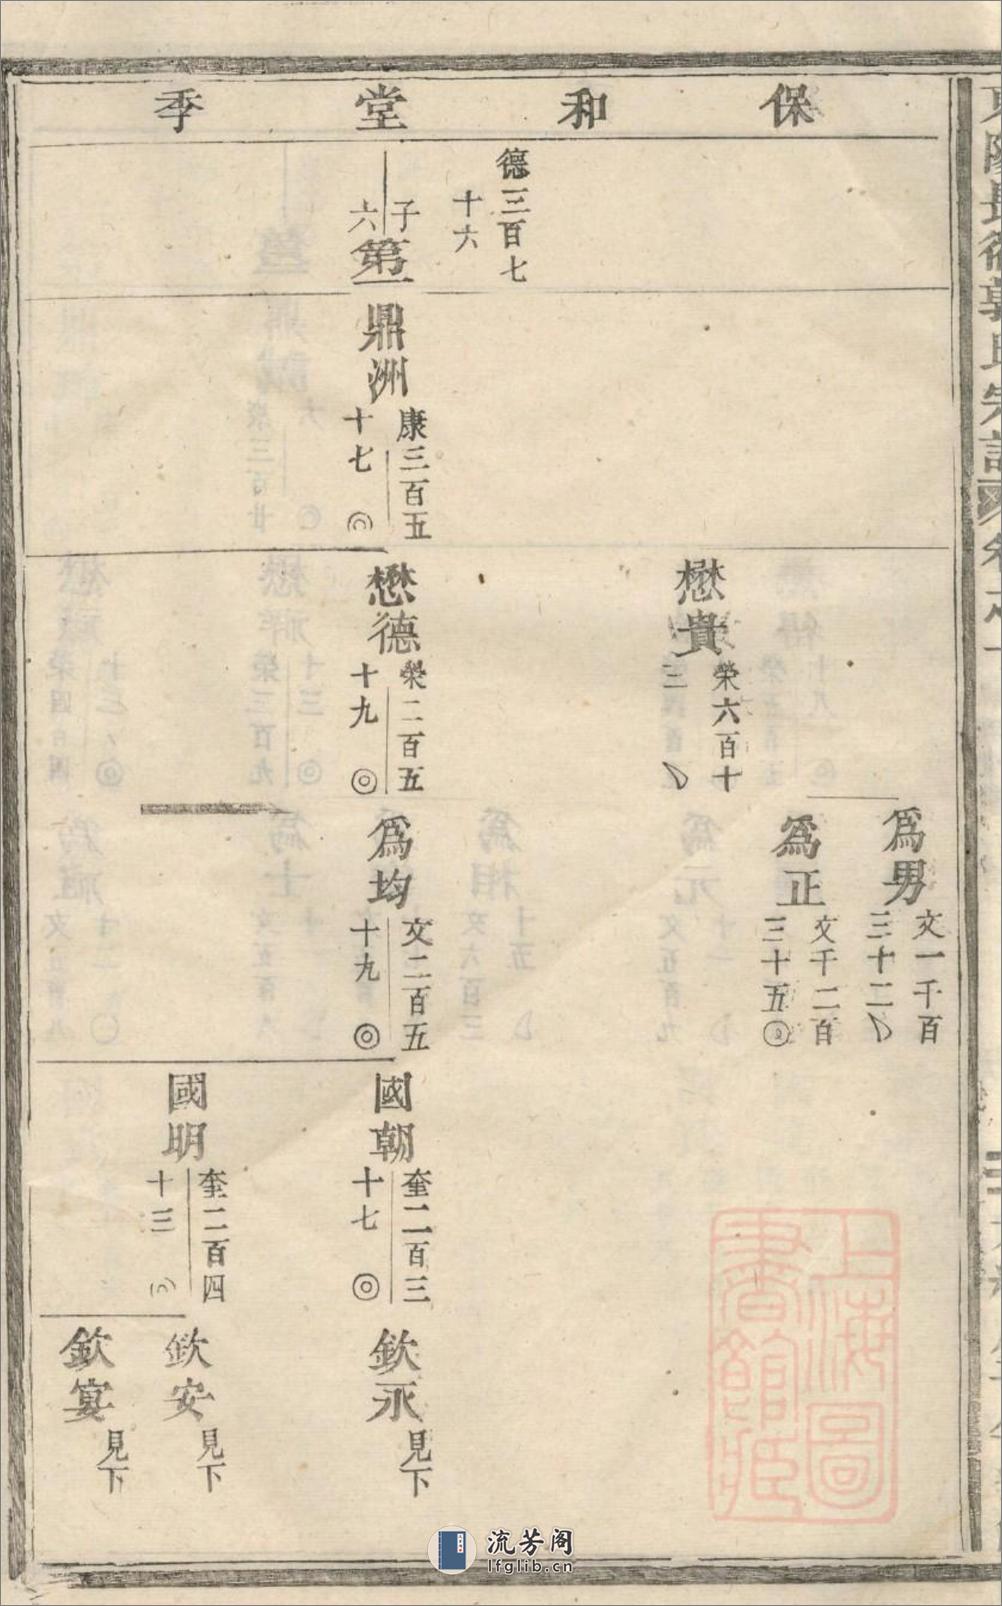 保和堂季
德三百七
十六
子
六
第一
鼎洲
康三百五
十七
懋貴
榮六百十
三
懋德
榮二百五
十九
爲男
文一千百
三十二
爲正
文千二百
三十五
爲均
文二百五
十九
國朝
奎二百三
十七
國明
奎二百四
十三
欽永
見下
欽安
見下
欽宴
見下
上海圖
書館藏
流芳阁
lfglib.cn